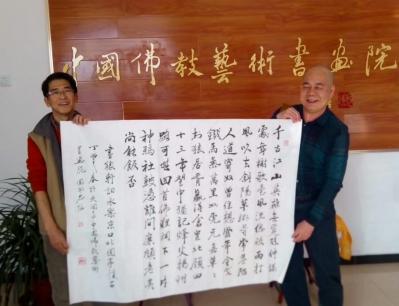 中國佛教藝術書畫院
千古江山英雄無覓孫仲謀
處舞榭歌臺風流總被雨打
風吹去斜陽草樹尋常巷陌
人道寄奴曾住想當年金戈
鐵馬氣吞萬里如虎元嘉草草
封狼居胥贏得倉皇北顧四
十三年望中猶記烽火揚州
路可堪回首佛狸祠下一片
神鴉社鼓憑誰問廉頗老矣
尚能飯否
永樂京口北固亭懷古
中國佛教藝術
書畫院